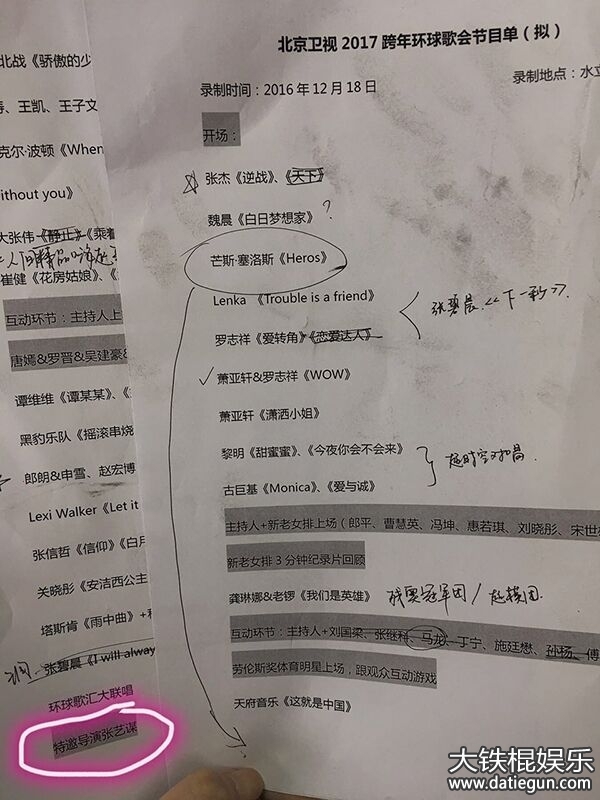 北京卫视 2017 跨年环球歌会节目单（拟）
录制时间：2016 年 12 月 18 日
录制地点：水立
开场：
张杰《逆战》、《天下》
魏晨《白日梦想家》?
芒斯·塞洛斯《Heros》
Lenka 《Trouble is a friend》
张碧晨《下一秒》.
罗志祥《爱转角》《恋爱达人》
萧亚轩&罗志祥《WOW》
萧亚轩《潇洒小姐》
黎明《甜蜜蜜》、《今夜你会不会来》
超时空对唱
古巨基《Monica》、《爱与诚》
主持人+新老女排上场（郎平、曹慧英、冯坤、惠若琪、刘晓彤、宋世
新老女排 3 分钟纪录片回顾
龚琳娜&老锣《我们是英雄》
奥冠军团/超模团.
互动环节：主持人+刘国梁、张继科、马龙、丁宁、施廷懋、孙杨、傅
劳伦斯奖体育明星上场，跟观众互动游戏
天府音乐《这就是中国》
?
北战《骄傲的少
、王凯、王子文
克尔·波顿《When
ithout you》
大张伟《静止》《乘着
崔健《花房姑娘》、《
互动环节：主持人上
唐嫣&罗晋&吴建豪&
谭维维《谭某某》、《
黑豹乐队《摇滚串烧
郎朗&申雪、赵宏博
Lexi Walker《Let it
张信哲《信仰》《白月
关晓彤《安洁西公主
塔斯肯《雨中曲》+
张碧晨《I will alway
环球歌汇大联唱
特邀导演张艺谋
大铁棍娱乐
www.datiegun.com